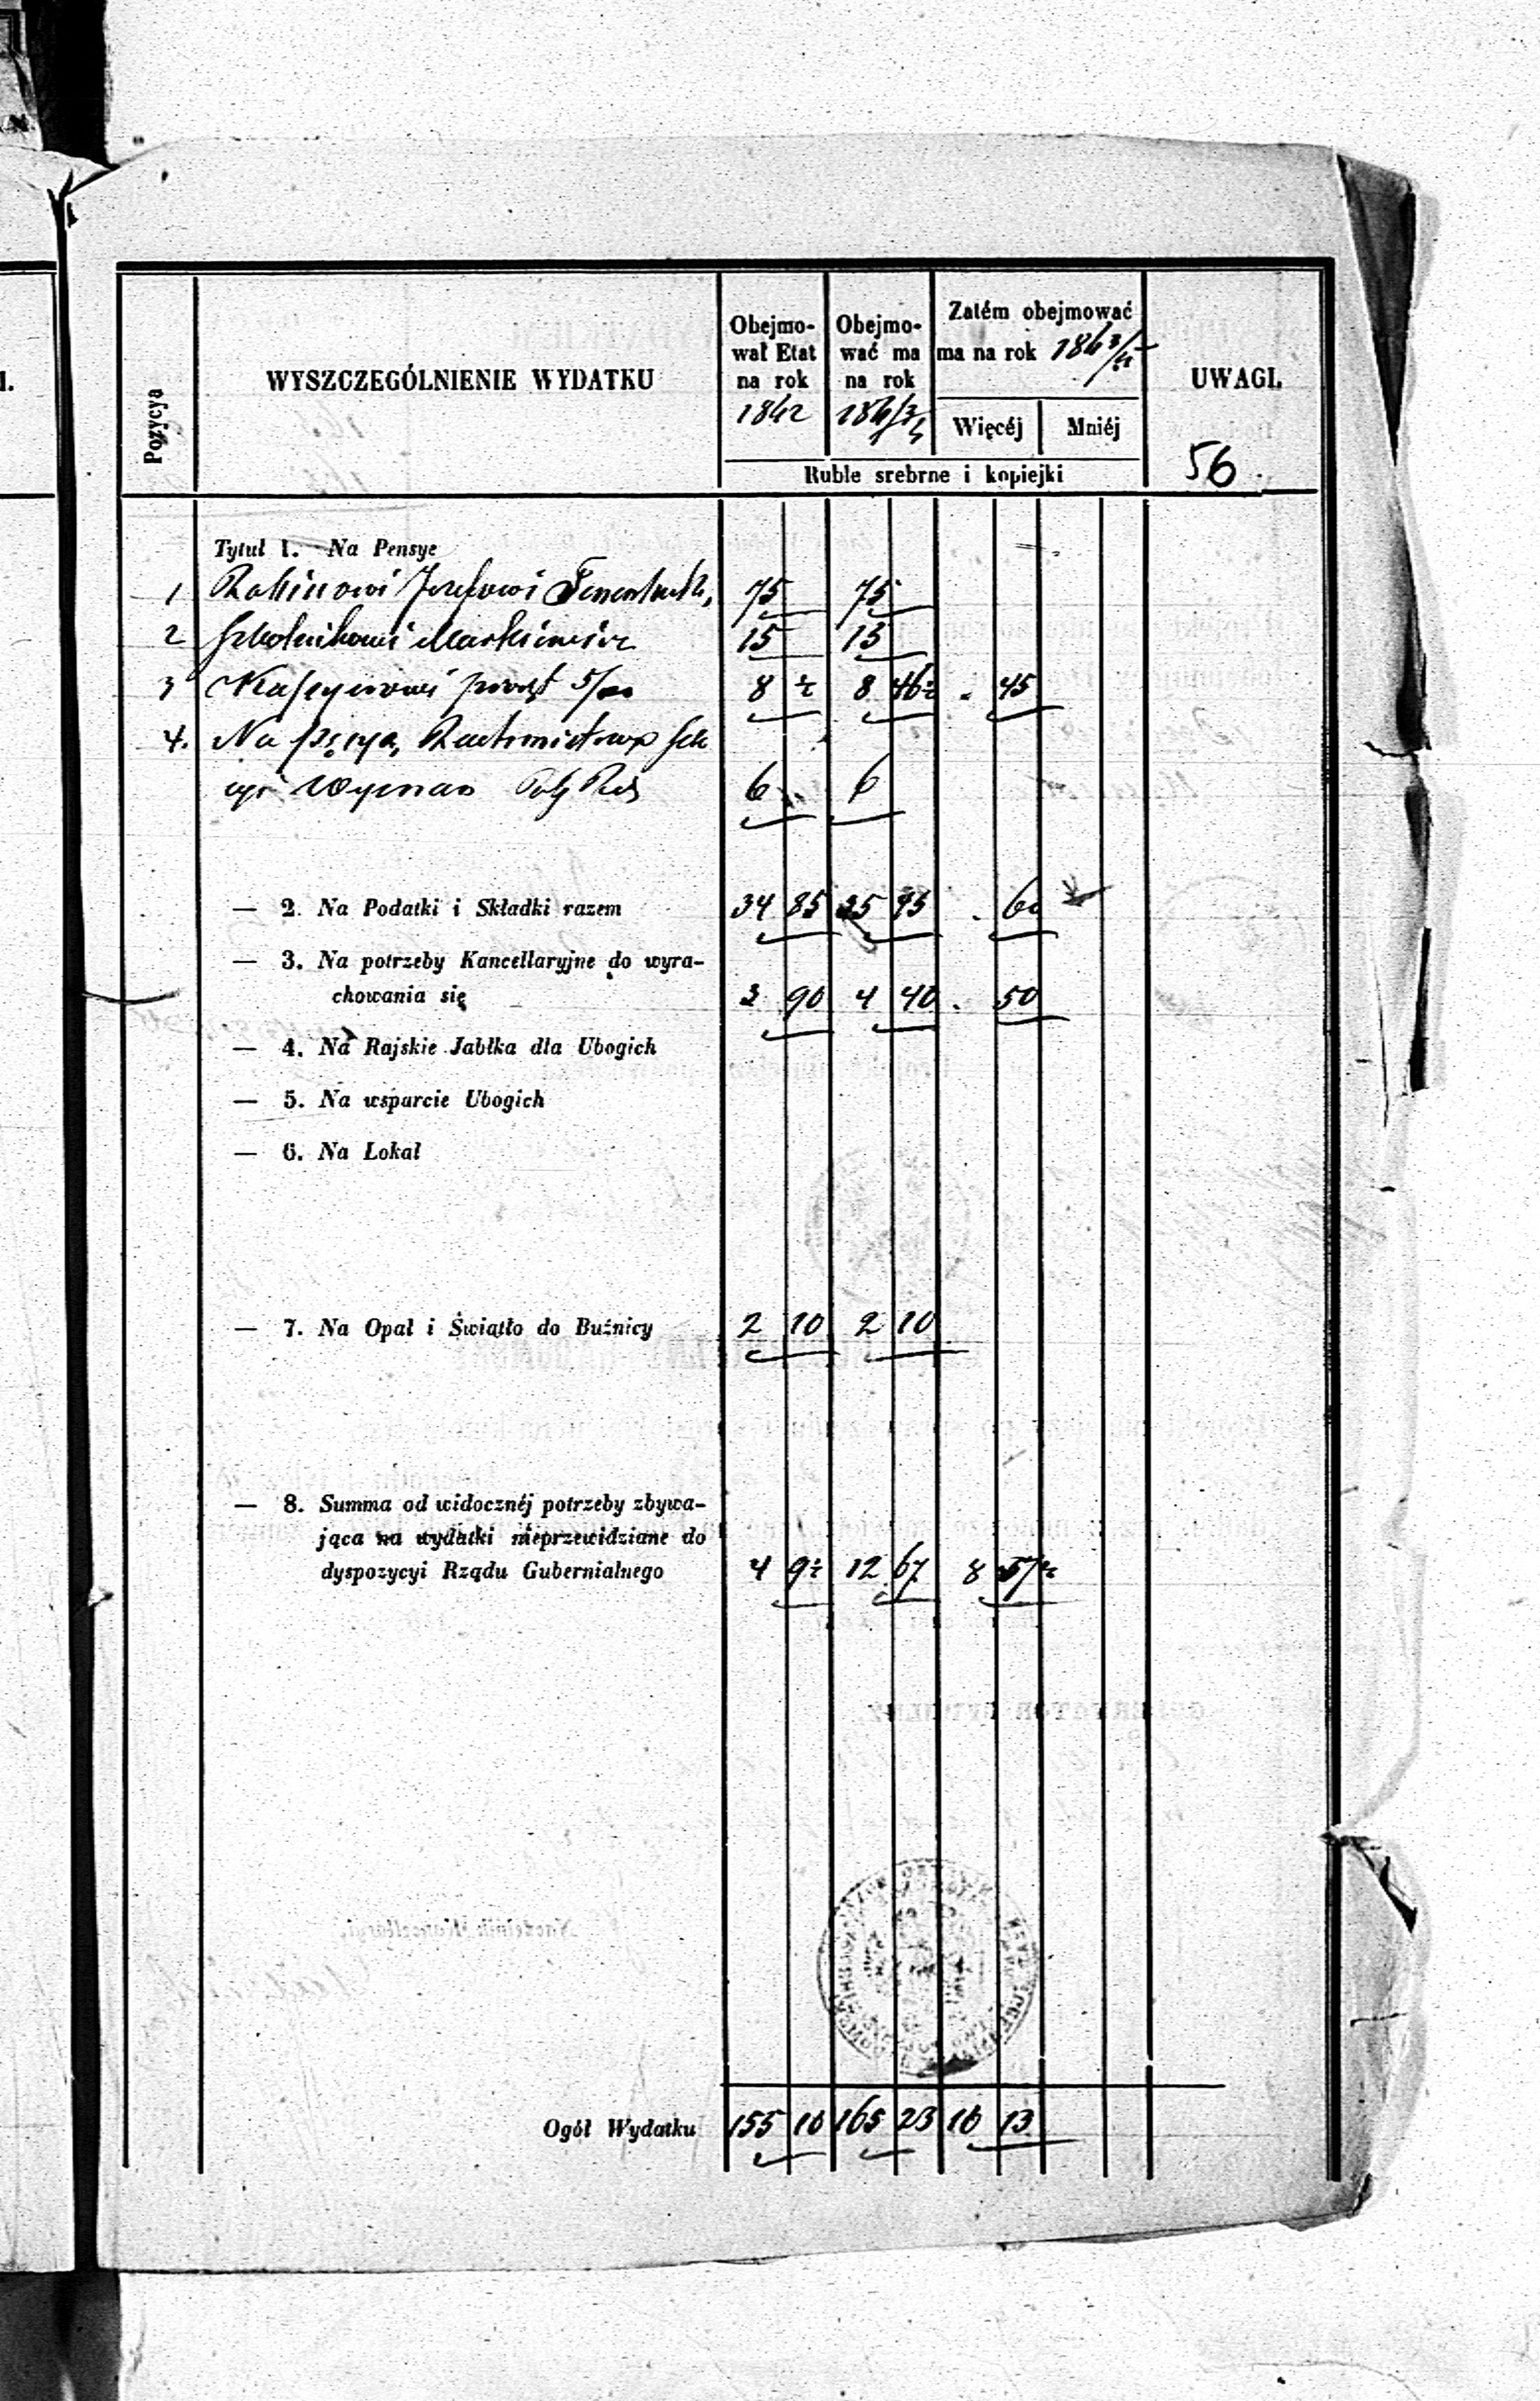 Pozycya
WYSZCZEGÓLNIENIE WYDATKU
Obejmo-
wał Etat
na rok
1842
Obejmo-
wać ma
na rok
Zatém obejmować
ma na rok
Więcéj
Mniéj
Ruble srebrne i kopiejki
UWAGI.
56
Tytuł 1. Na Pensye
1 Rabinowi Jozefowi 75 75
2 Szkolnikowi 15 15
3 Kassyerowi 5/00 8 ½ 8 46½ . 45
4. Na
6 6
— 2. Na Podatki i Składki razem 34 85 35 45 . 60
— 3. Na potrzeby Kancellaryjne do wyra-
chowania się 3 90 4 40 . 50
— 4. Na Rajskie Jabłka dla Ubogich
— 5. Na wsparcie Ubogich
— 6. Na Lokal
— 7. Na Opał i Światło do Buźnicy 2 10 2 10
— 8. Summa od widocznéj potrzeby zbywa-
jąca na wydatki nieprzewidziane do
dyspozycyi Rządu Gubernialnego 4 9½ 12 67 8 57½
Ogół Wydatku 155 10 165 23 10 13